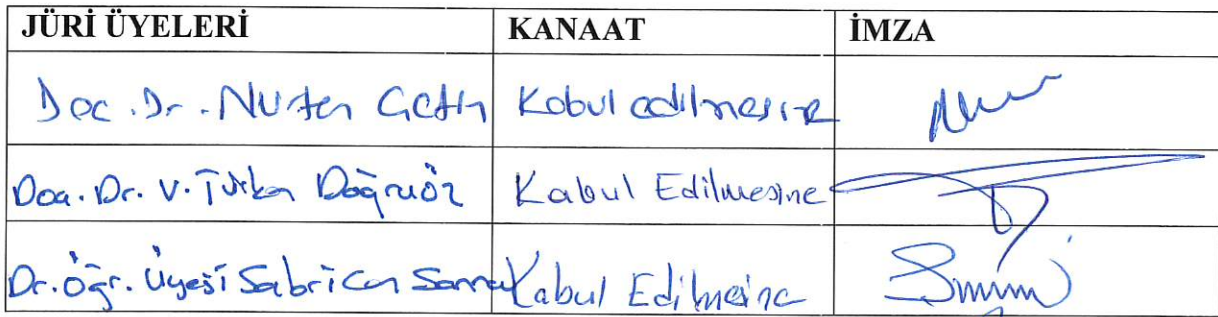 JÜRİ ÜYELERİ KANAAT İMZA
Doç. Dr. Nurten Çetin Kabul edilmesine
Doç. Dr. V. Türkan Doğruöz Kabul Edilmesine
Dr. Öğr. Üyesi Sabri Can Kabul Edilmesine